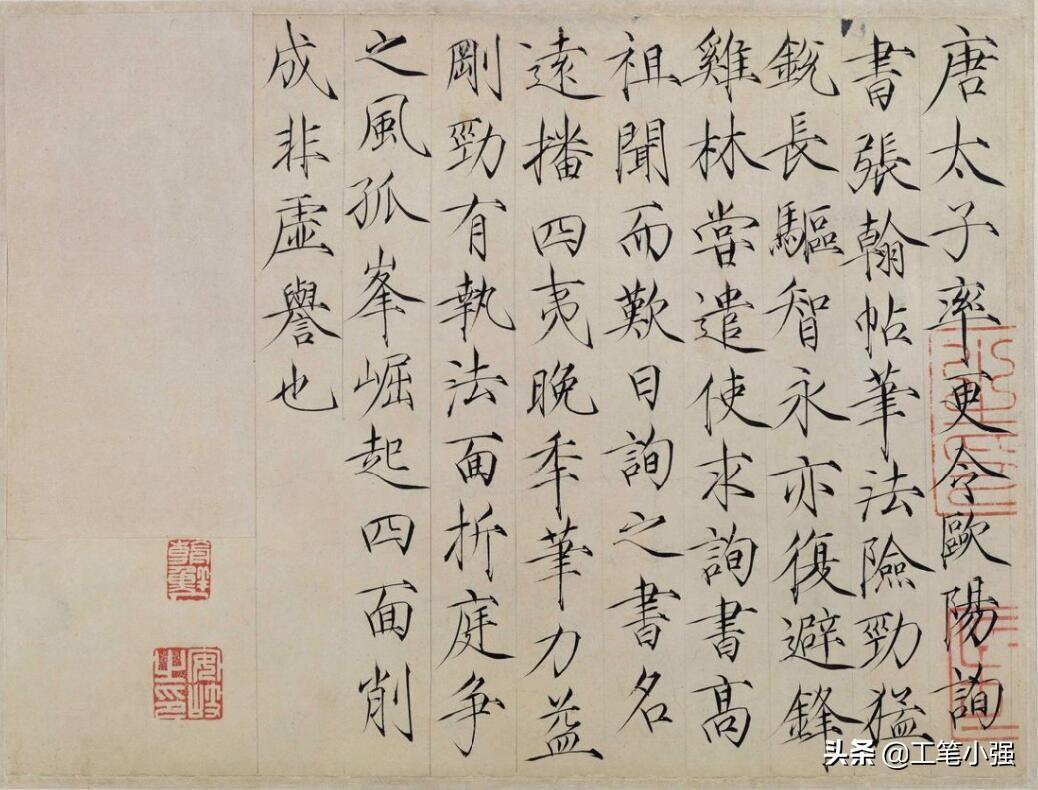 唐太子率更令歐陽詢
書張翰帖筆法險勁猛
銳長驅智永亦復避鋒
雞林嘗遣使求詢書高
祖聞而歎曰詢之書名
遠播四夷晚年筆力益
剛勁有執法面折庭争
之風孤峯崛起四面削
成非虛譽也
头条 @工笔小强